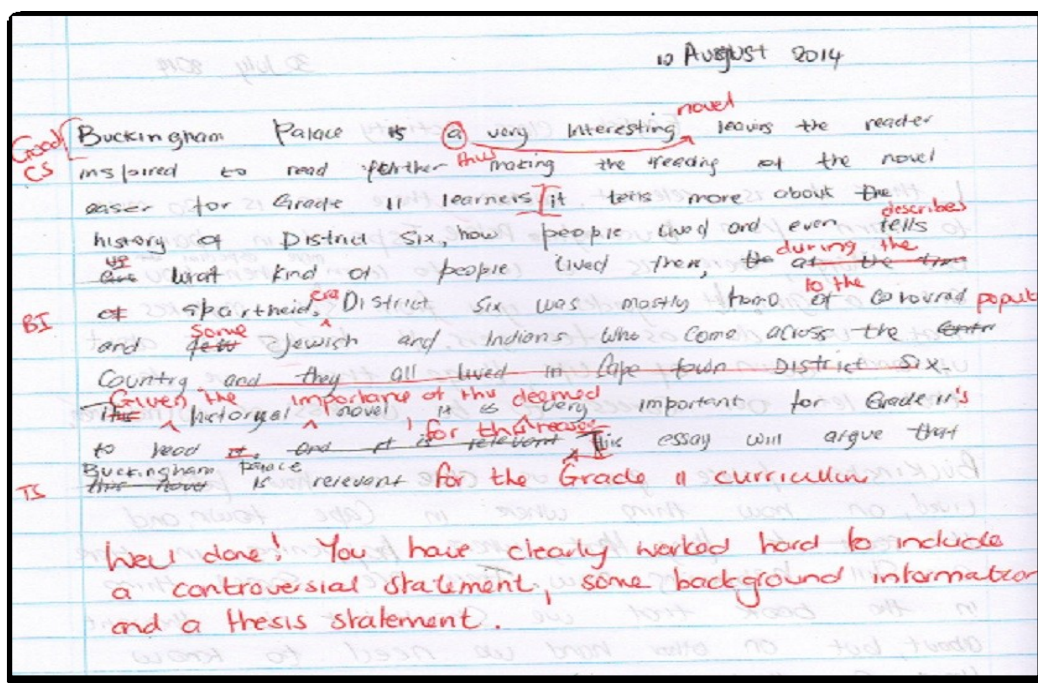 10 August 2014
novel
Good Buckingham Palace is a very interesting leaving the reader
CS inspired to read further thus making the reading of the novel
easer for Grade 11 learners it tells more about the
describes
history of District Six, how people lived and even tells
us what kind of people lived there, at the time during the
of apartheid, era District Six was mostly home of to the coloured popul
BI and few some Jewish and Indians who come across the
Country and they all lived in Cape town District Six.
Given the importance of this deemed
This historyal novel it is very important for Grade 11's
to read it, and it is relevant for this reason This essay will argue that
Buckingham Palace
TS this novel is relevant for the Grade 11 curriculum
Well done! You have clearly worked hard to include
a controversial statement, some background information
and a thesis statement.